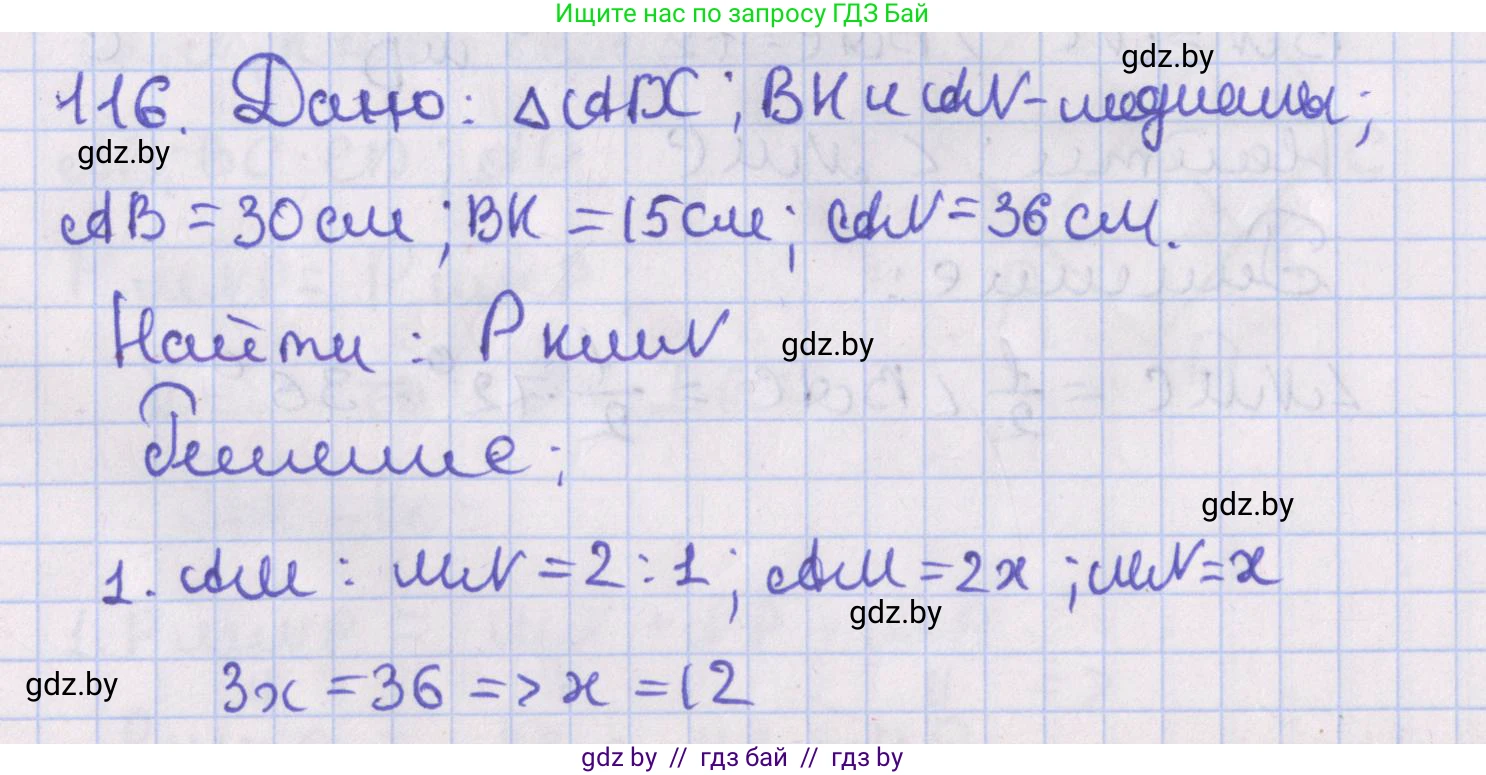 Ищите нас по запросу ГДЗ Бай
gdz.by
116. Дано: △ABC; BK и AN - медианы;
gdz.by
AB = 30 см; BK = 15 см; AN = 36 см.
Найти: P KMN
gdz.by
Решение:
gdz.by
1. AM : MN = 2 : 1; AM = 2x; MN = x
gdz.by
gdz.by
3x = 36 => x = 12
gdz by // гдз бай // гдз by